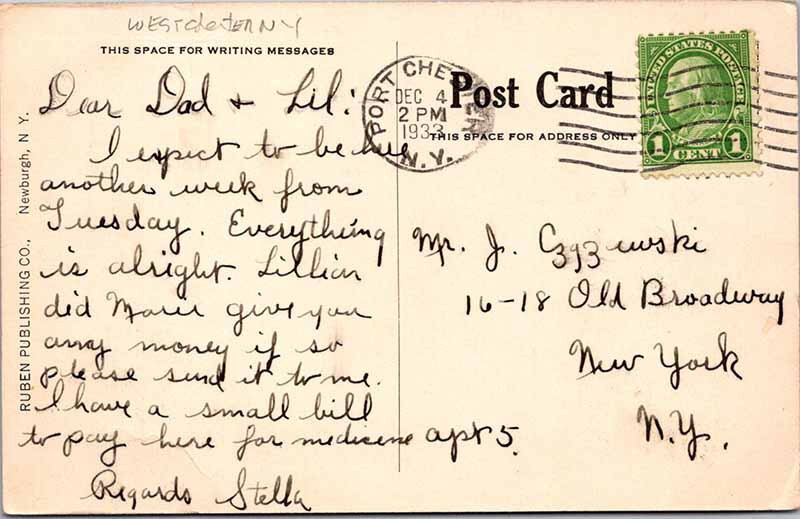 WESTCHESTER NY
THIS SPACE FOR WRITING MESSAGES
Dear Dad & Lil:
I expect to be here
another week from
Tuesday. Everything
is alright. Lillian
did Marie give you
any money if so
please send it to me.
I have a small bill
to pay here for medicene
Regards Stella
RUBEN PUBLISHING CO., Newburgh, N. Y.
PORT CHESTER
DEC 4
2 PM
1933
N.Y.
Post Card
THIS SPACE FOR ADDRESS ONLY
UNITED STATES POSTAGE
1 CENT 1
Mr. J.
16-18 Old Broadway
New York
N.Y.
apt 5.